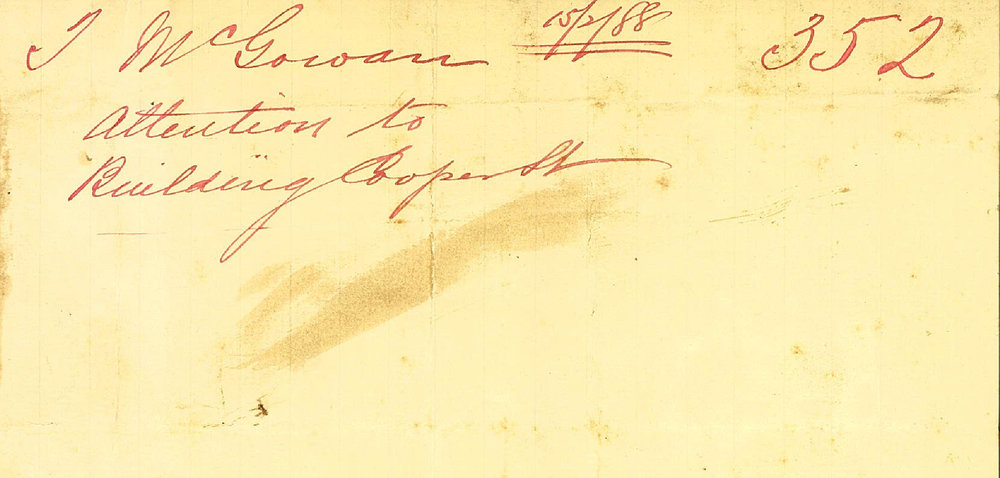 T McGowan 15/2/88 352
Attention to
Building Cooper St